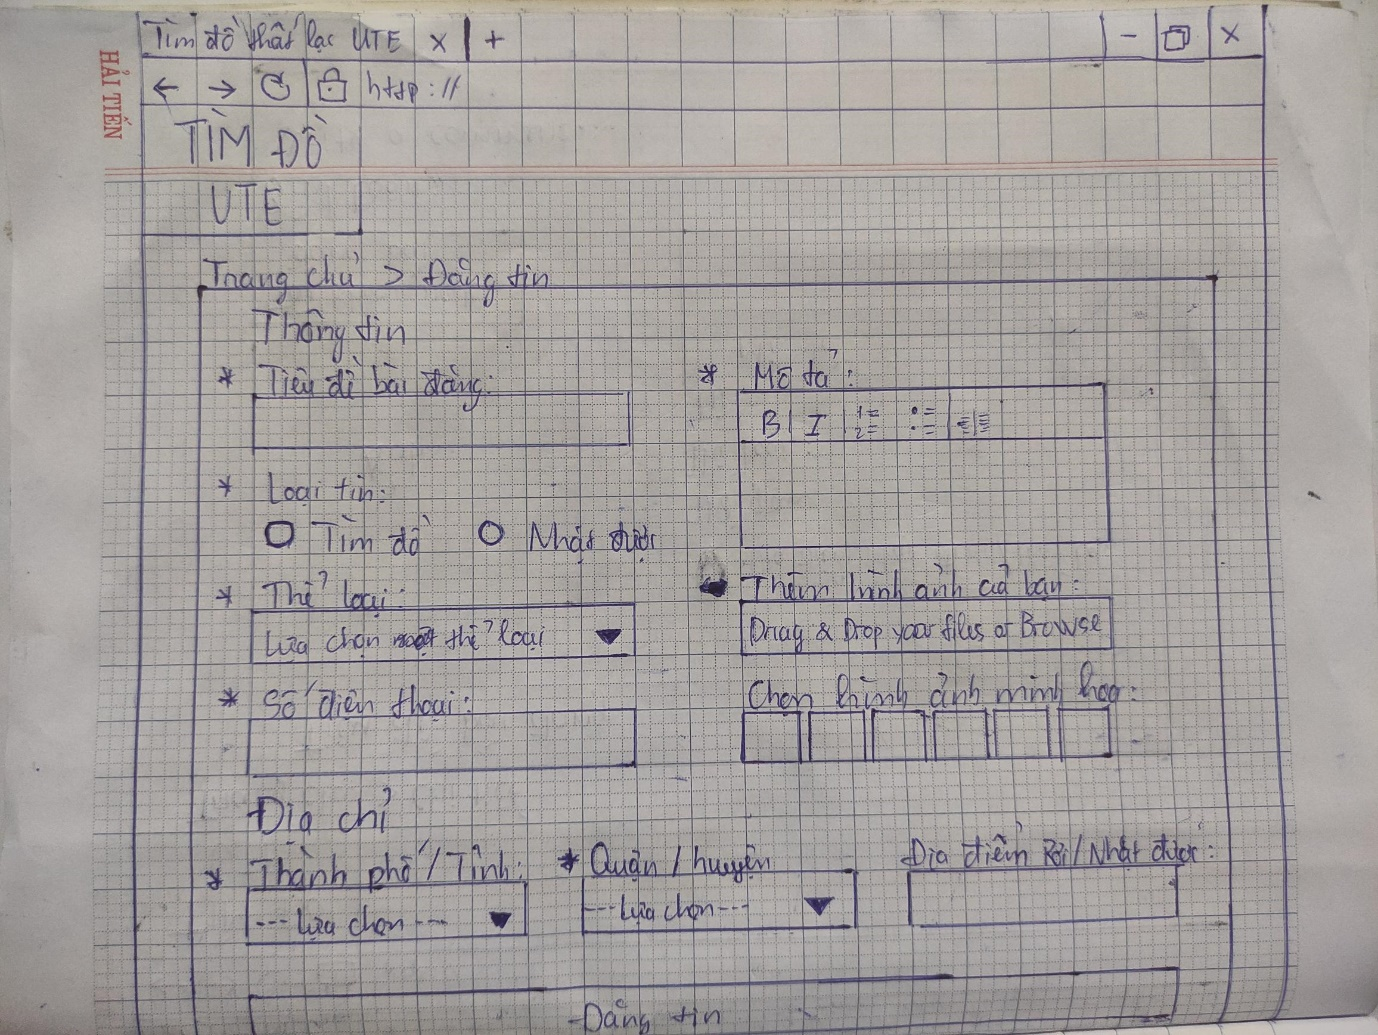 HẢI TIẾN
Tìm đồ thất lạc UTE X | + - X
← → http://
TÌM ĐỒ
UTE
Trang chủ > Đăng tin
Thông tin
* Tiêu đề bài đăng:
* Mô tả:
B | I 1= 2=
* Loại tin:
Tìm đồ Nhặt được
* Thể loại:
Lựa chọn một thể loại
Thêm hình ảnh củ bạn:
Drag & Drop your files or Browse
* Số điện thoại:
Chọn hình ảnh minh họa:
Địa chỉ
* Thành phố / Tỉnh:
--- Lựa chọn ---
* Quận / huyện
---Lựa chọn---
Địa điểm Rơi / Nhặt được:
Đăng tin